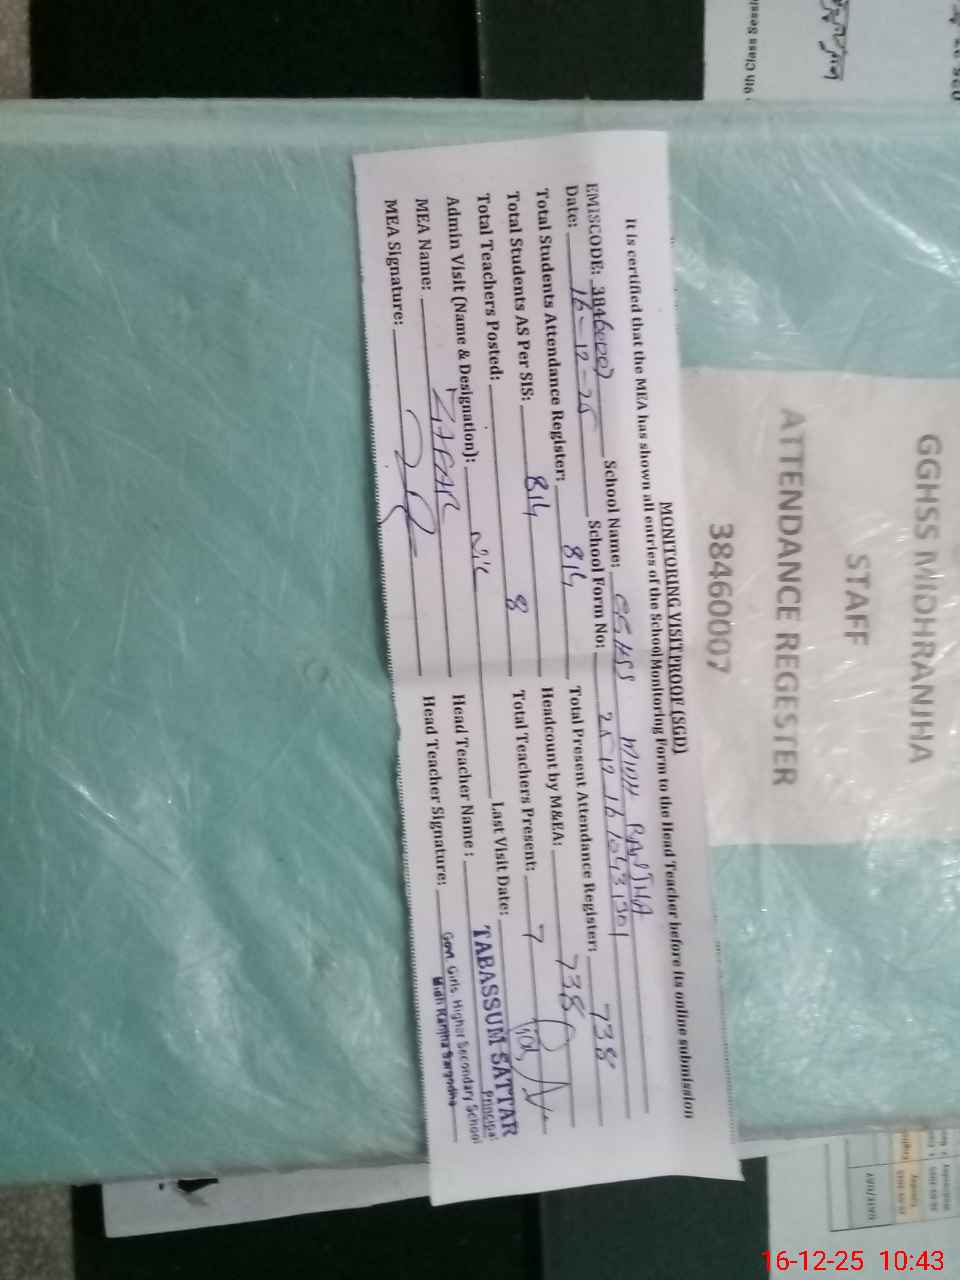 GGHSS MIDHRANJHA
STAFF
ATTENDANCE REGESTER
38460007
MONITORING VISIT PROOF (SGD)
It is certified that the MEA has shown all entries of the School Monitoring Form to the Head Teacher before its online submission
EMISCODE: 38460007 School Name: GGHSS MIDH RANJHA
Date: 16-12-25 School Form No: 25 12 16 1043 1301
Total Students Attendance Register: 814 Total Present Attendance Register: 738
Total Students AS Per SIS: 814 Headcount by M&EA: 738
Total Teachers Posted: 8 Total Teachers Present: 7
Admin Visit (Name & Designation): Nil Last Visit Date:
MEA Name: ZAFAR Head Teacher Name:
MEA Signature: Head Teacher Signature:
TABASSUM SATTAR
Principal
Govt. Girls Higher Secondary School
Midh Ranjha Sargodha
16-12-25 10:43